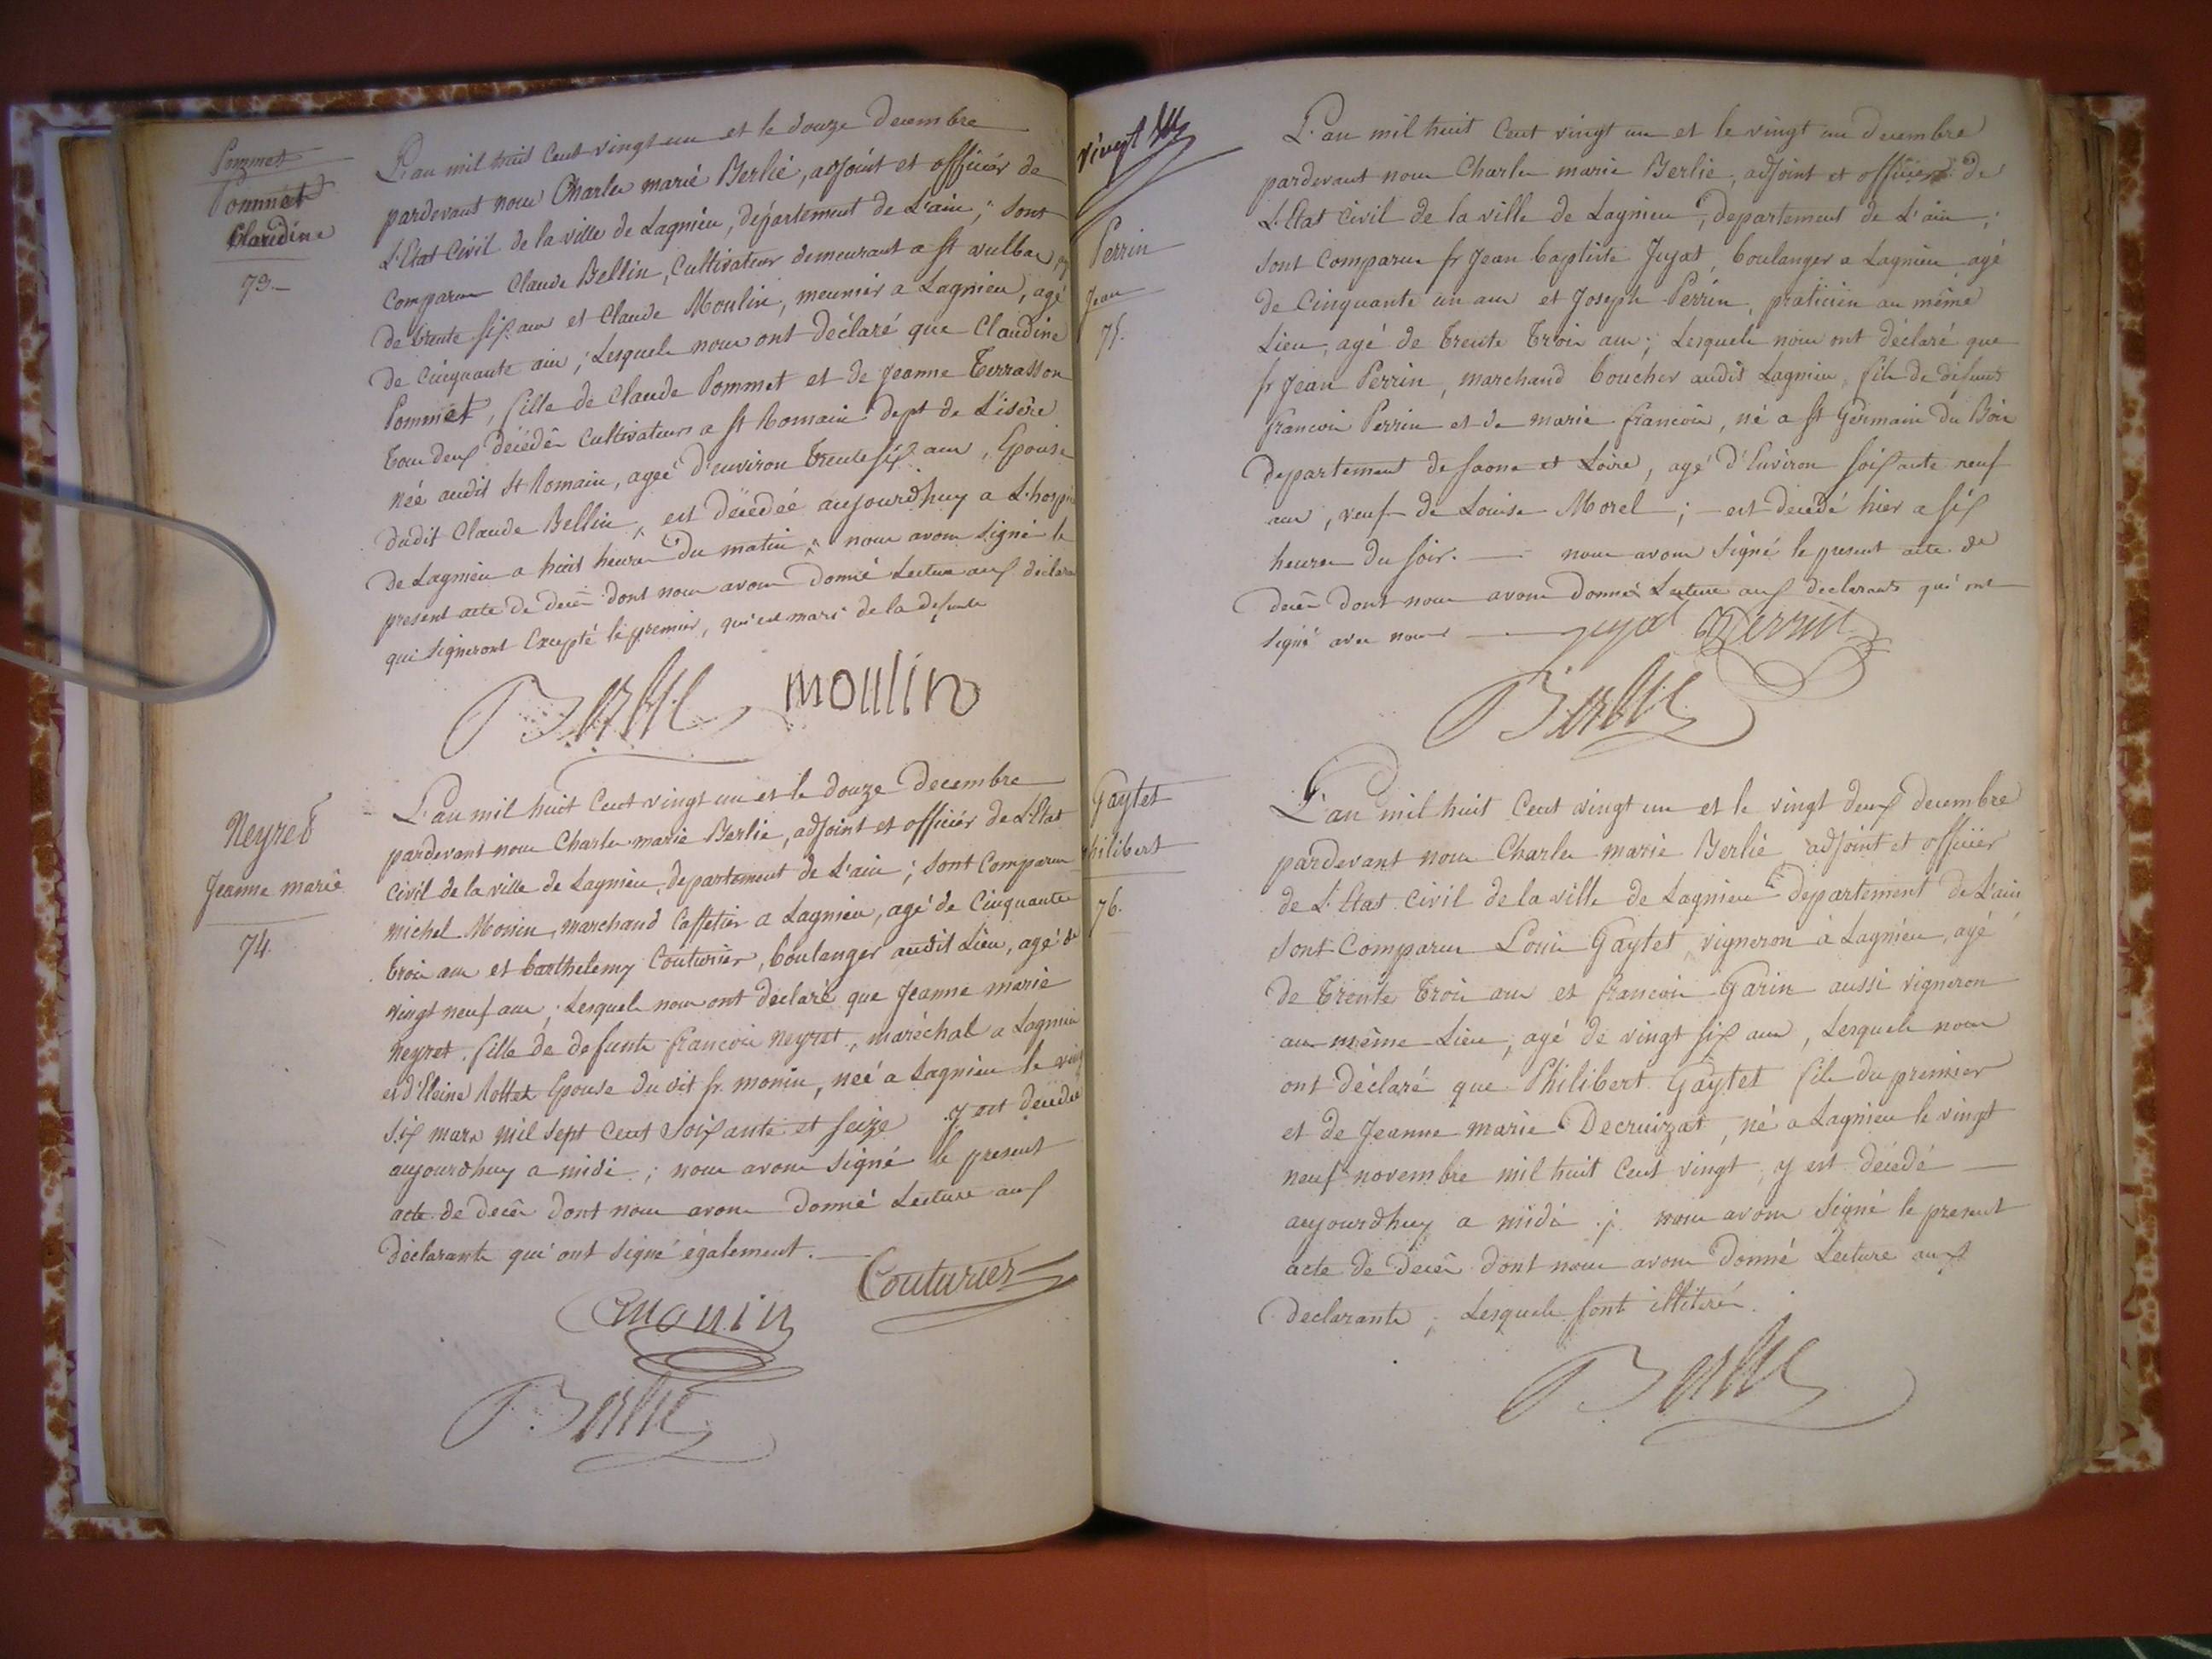 Pommet
Pommet
Claudine
73.
L'an mil huit cent vingt un et le douze decembre
pardevant nous Charles marie Berlié, adjoint et officier de
L'Etat Civil de la ville de Lagnieu, departement de L'ain; sont
comparus Claude Bellin, Cultivateur demeurant a st vulbas, agé
de trente six ans et Claude Moulin, meunier a Lagnieu, agé
de cinquante ans; Lesquels nous ont déclaré que Claudine
Pommet, fille de Claude Pommet et de Jeanne Terrasson
tous deux décédés Cultivateurs a st Romain dept de L'isère
née audit st Romain, agée d'environ trente six ans, Epouse
dudit Claude Bellin, est décédée aujourdhuy a L'hospice
de Lagnieu a huit heures du matin, nous avons signé le
present acte de decès dont nous avons donné Lecture aux declarants
qui signeront Excepté le premier, qui est mari de la defunte
Berlié moulin
Neyret
Jeanne marie
74.
L'an mil huit cent vingt un et le douze Decembre
pardevant nous Charles marie Berlié, adjoint et officier de L'Etat
civil de la ville de Lagnieu, departement de L'ain; sont comparus
michel Monin, marchand Caffetier a Lagnieu, agé de Cinquante
trois ans et barthelemy Couturier, boulanger audit Lieu, agé de
vingt neuf ans; Lesquels nous ont déclaré que Jeanne marie
neyret, fille de defunts francois neyret, maréchal a Lagnieu
et d'Eleine Rottet Epouse du dit sr. monin, née a Lagnieu le vingt
six mars mil sept cent soixante et seize y est décédée
aujourdhuy a midi; nous avons signé le present
acte de decès dont nous avons donné Lecture aux
déclarants qui ont signé également.
Couturier
monin
Berlié
vingt
Perrin
Jean
75.
L'an mil huit cent vingt un et le vingt un decembre
pardevant nous Charles marie Berlié, adjoint et officier de
L'Etat civil de la ville de Lagnieu, departement de L'ain;
sont comparus sr Jean baptiste Juyat, boulanger a Lagnieu agé
de Cinquante un ans et Joseph Perrin, praticien au même
Lieu, agé de trente trois ans; Lesquels nous ont déclaré que
sr Jean Perrin, marchand boucher audit Lagnieu, fils de défunts
francois Perrin et de marie francois, né a st Germain du Bois
departement de saone et Loire, agé d'Environ soixante neuf
ans, veuf de Louise Morel; est decedé hier a six
heures du soir. nous avons signé le present acte de
decès dont nous avons donné Lecture aux declarants qui ont
signé avec nous Juyat Perrin
Berlié
Gaytet
Philibert
76.
L'an mil huit cent vingt un et le vingt deux decembre
pardevant nous Charles marie Berlié adjoint et officier
de L'Etat civil de la ville de Lagnieu departement de L'ain
sont comparus Louis Gaytet vigneron à Lagnieu, agé
de trente trois ans et francois Garin aussi vigneron
au même Lieu, agé de vingt six ans, Lesquels nous
ont déclaré que Philibert Gaytet fils du premier
et de Jeanne marie Decruizat, né a Lagnieu le vingt
neuf novembre mil huit cent vingt, y est décédé
aujourdhuy a midi; nous avons signé le present
acte de decès dont nous avons donné Lecture aux
declarants, Lesquels sont illitérés.
Berlié